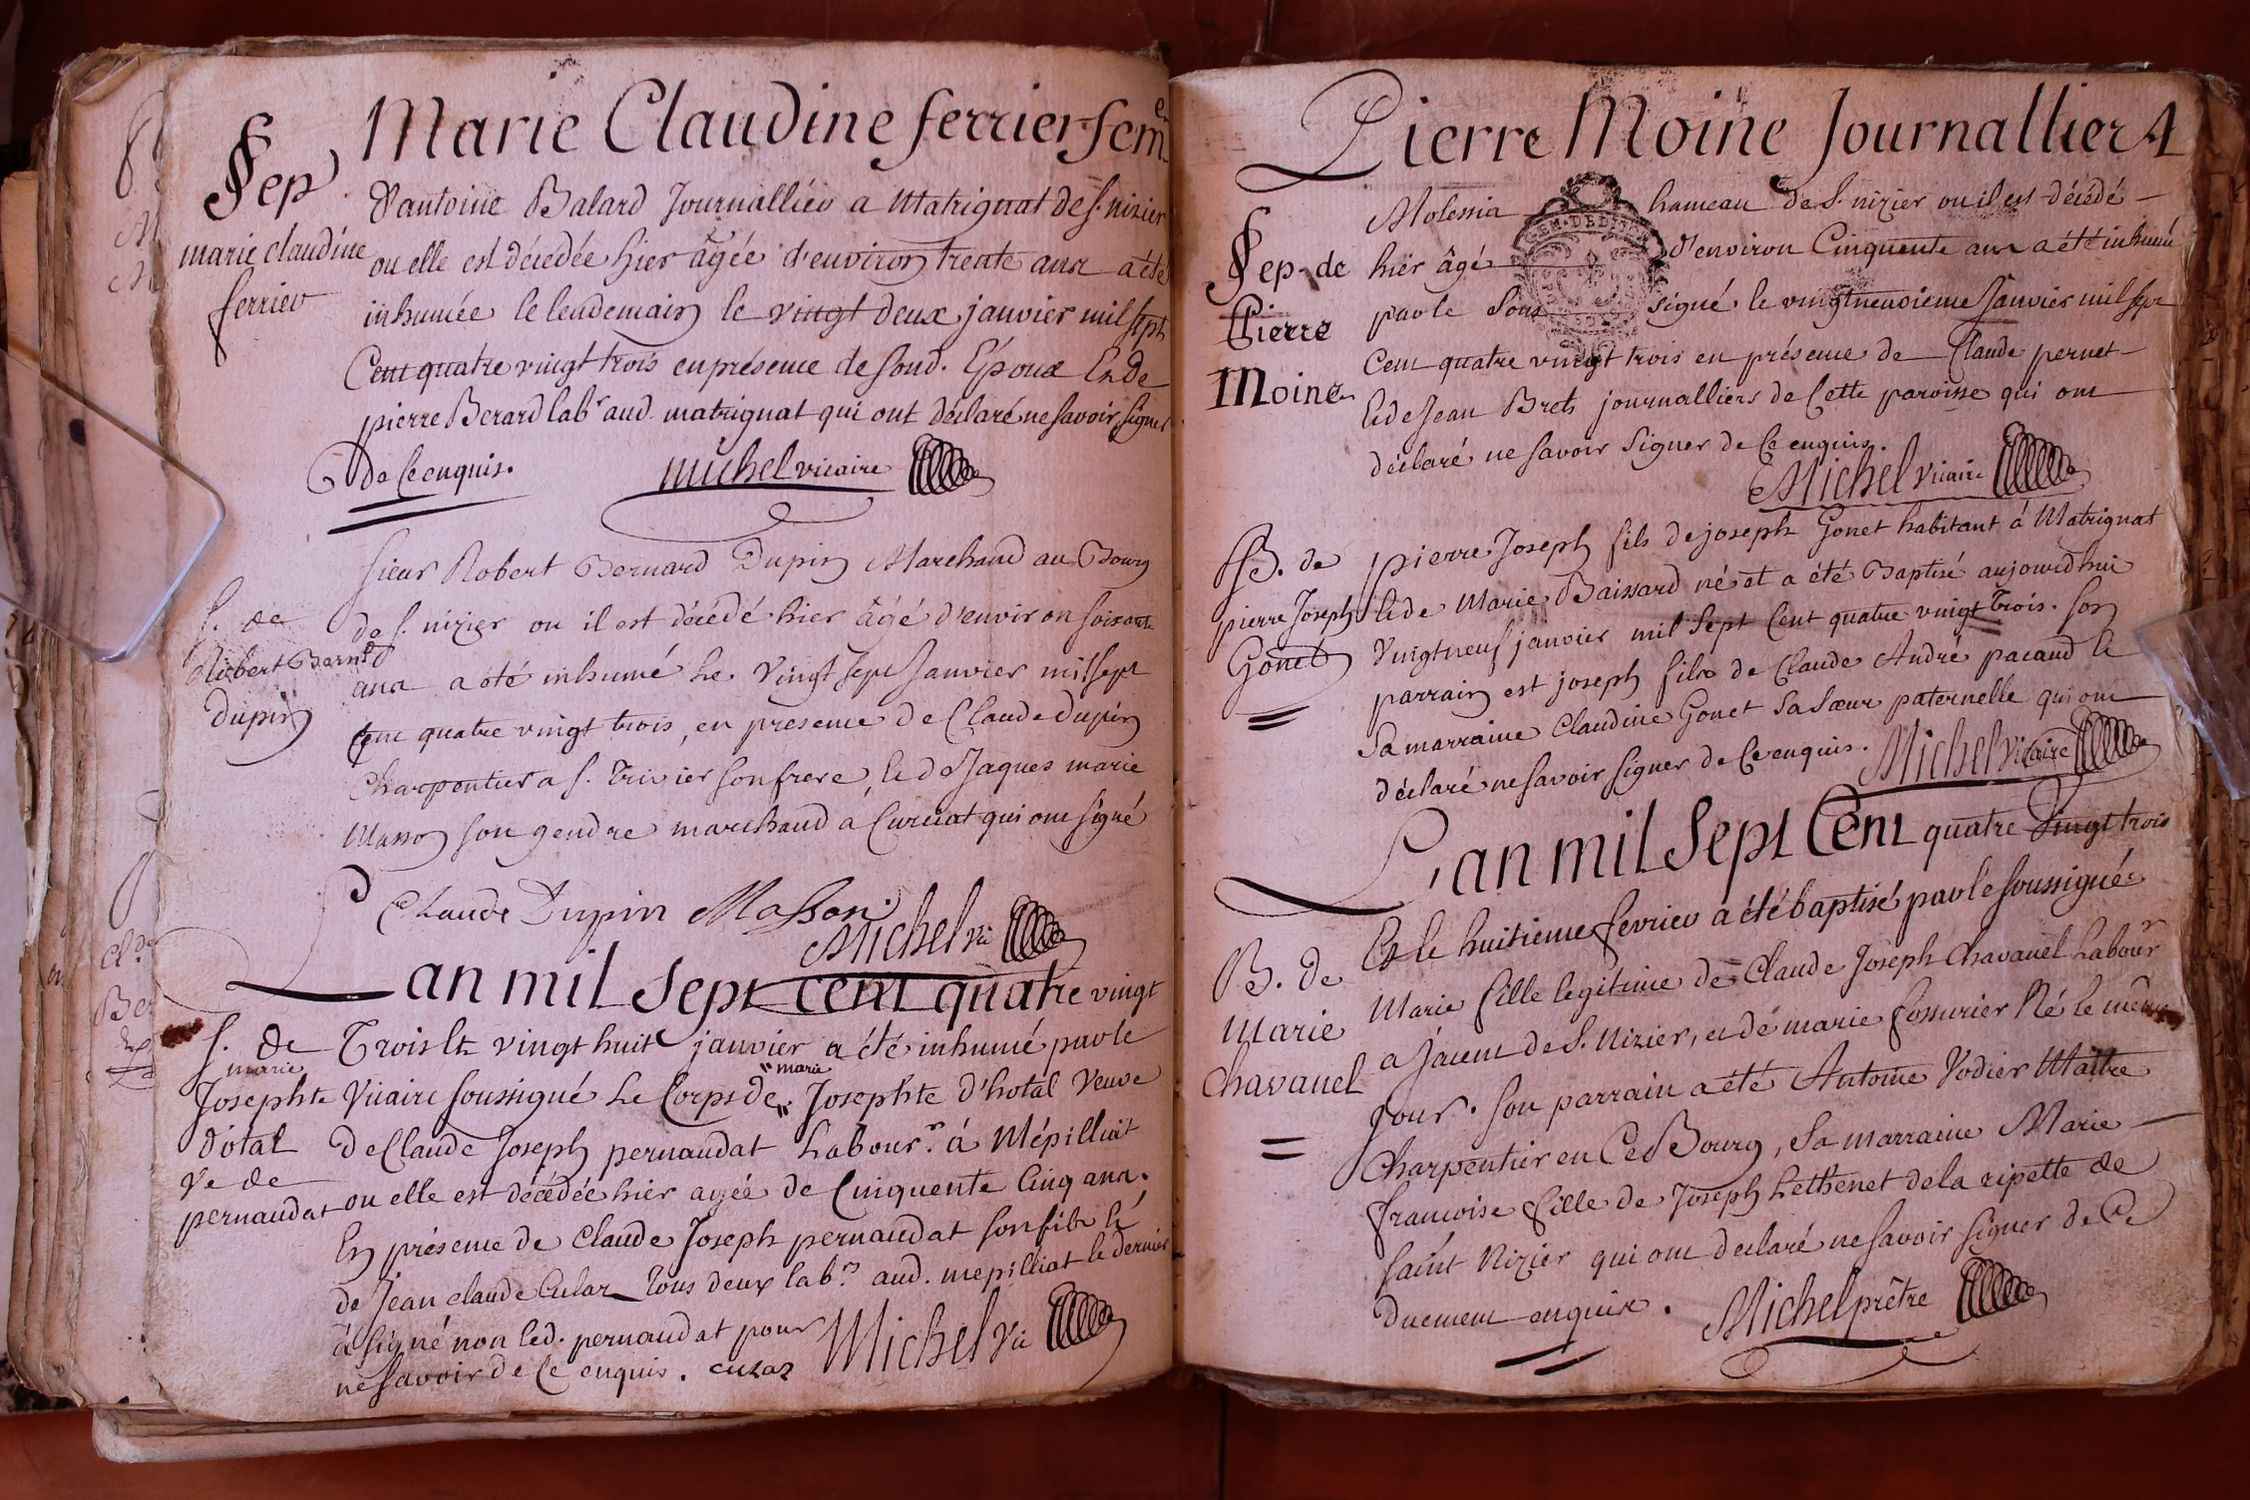 Marie Claudine ferrier fem.e
Sep
marie claudine
ferrier
D'antoine Balard Journallier a Matrignat de S. nizier
ou elle est décédée hier âgée d'environ trente ans a été
inhumée le lendemain le vingt deux janvier mil sept
Cent quatre vingt trois en présence de Sond. Époux Et de
pierre Berard lab.r aud. matrignat qui ont déclaré ne savoir signer
de Ce enquis. Michel vicaire
S. de
Robert Bern.d
Dupin
Sieur Robert Bernard Dupin Marchand au Bourg
de S. nizier ou il est décédé hier âgé d'environ soixante
ans a été inhumé Le Vingt sept Janvier mil sept
Cent quatre vingt trois, en presence de Claude Dupin
Charpentier a S. Trivier son frere, Et de Jaques marie
Masson son gendre marchand a Curciat qui ont signé
Claude Dupin Masson
Michel Vic
L'an mil Sept Cent quatre vingt
S. de
marie
Josephte
Dotal
Ve de
pernaudat
Trois Et vingt huit janvier a été inhumé par le
Vicaire soussigné Le Corps de marie Josephte d'hotal Veuve
De Claude Joseph pernaudat Labour.r à Mépilliat
ou elle est décédée hier agée de Cinquente Cinq ans.
En présence de Claude Joseph pernaudat son fils Et
de Jean claude Cular tous deux lab.rs aud. mepilliat le dernier
a signé non led. pernaudat pour
ne savoir de Ce enquis. culaz Michel Vic
Pierre Moine Journallier 4
Sep. de
Pierre
Moine
Molessia hameau de S. nizier ou il est décédé
hier âgé d'environ Cinquente ans a été inhumé
par le Sous signé le vingt neuvieme Janvier mil sept
Cent quatre vingt trois en présence de Claude pernet
Et de Jean Bret journalliers de Cette paroisse qui ont
déclaré ne savoir signer de Ce enquis.
Michel Vicaire
B. de
pierre Joseph
Gonet
pierre Joseph fils de joseph Gonet habitant à Matrignat
Et de Marie Baissard né et a été Baptisé aujourdhui
Vingt neuf janvier mil sept Cent quatre vingt trois. son
parrain est joseph fils de Claude André pacaud Et
Sa marraine Claudine Gonet Sa sœur paternelle qui ont
déclaré ne savoir signer de Ce enquis. Michel Vicaire
L'an mil Sept Cent quatre Vingt trois
B. de
Marie
Chavanel
Et le huitieme fevrier a été baptisé par le soussigné
Marie fille legitime de Claude Joseph Chavanel Labour.r
a jacent de S. Nizier, et de marie fossurier Né le même
jour. son parrain a été Antoine Vodier Maitre
Charpentier en Ce Bourg, Sa marraine Marie
francoise fille de Joseph Lethenet de la ripette de
saint Nizier qui ont declaré ne savoir signer de Ce
Duement enquis. Michel prêtre